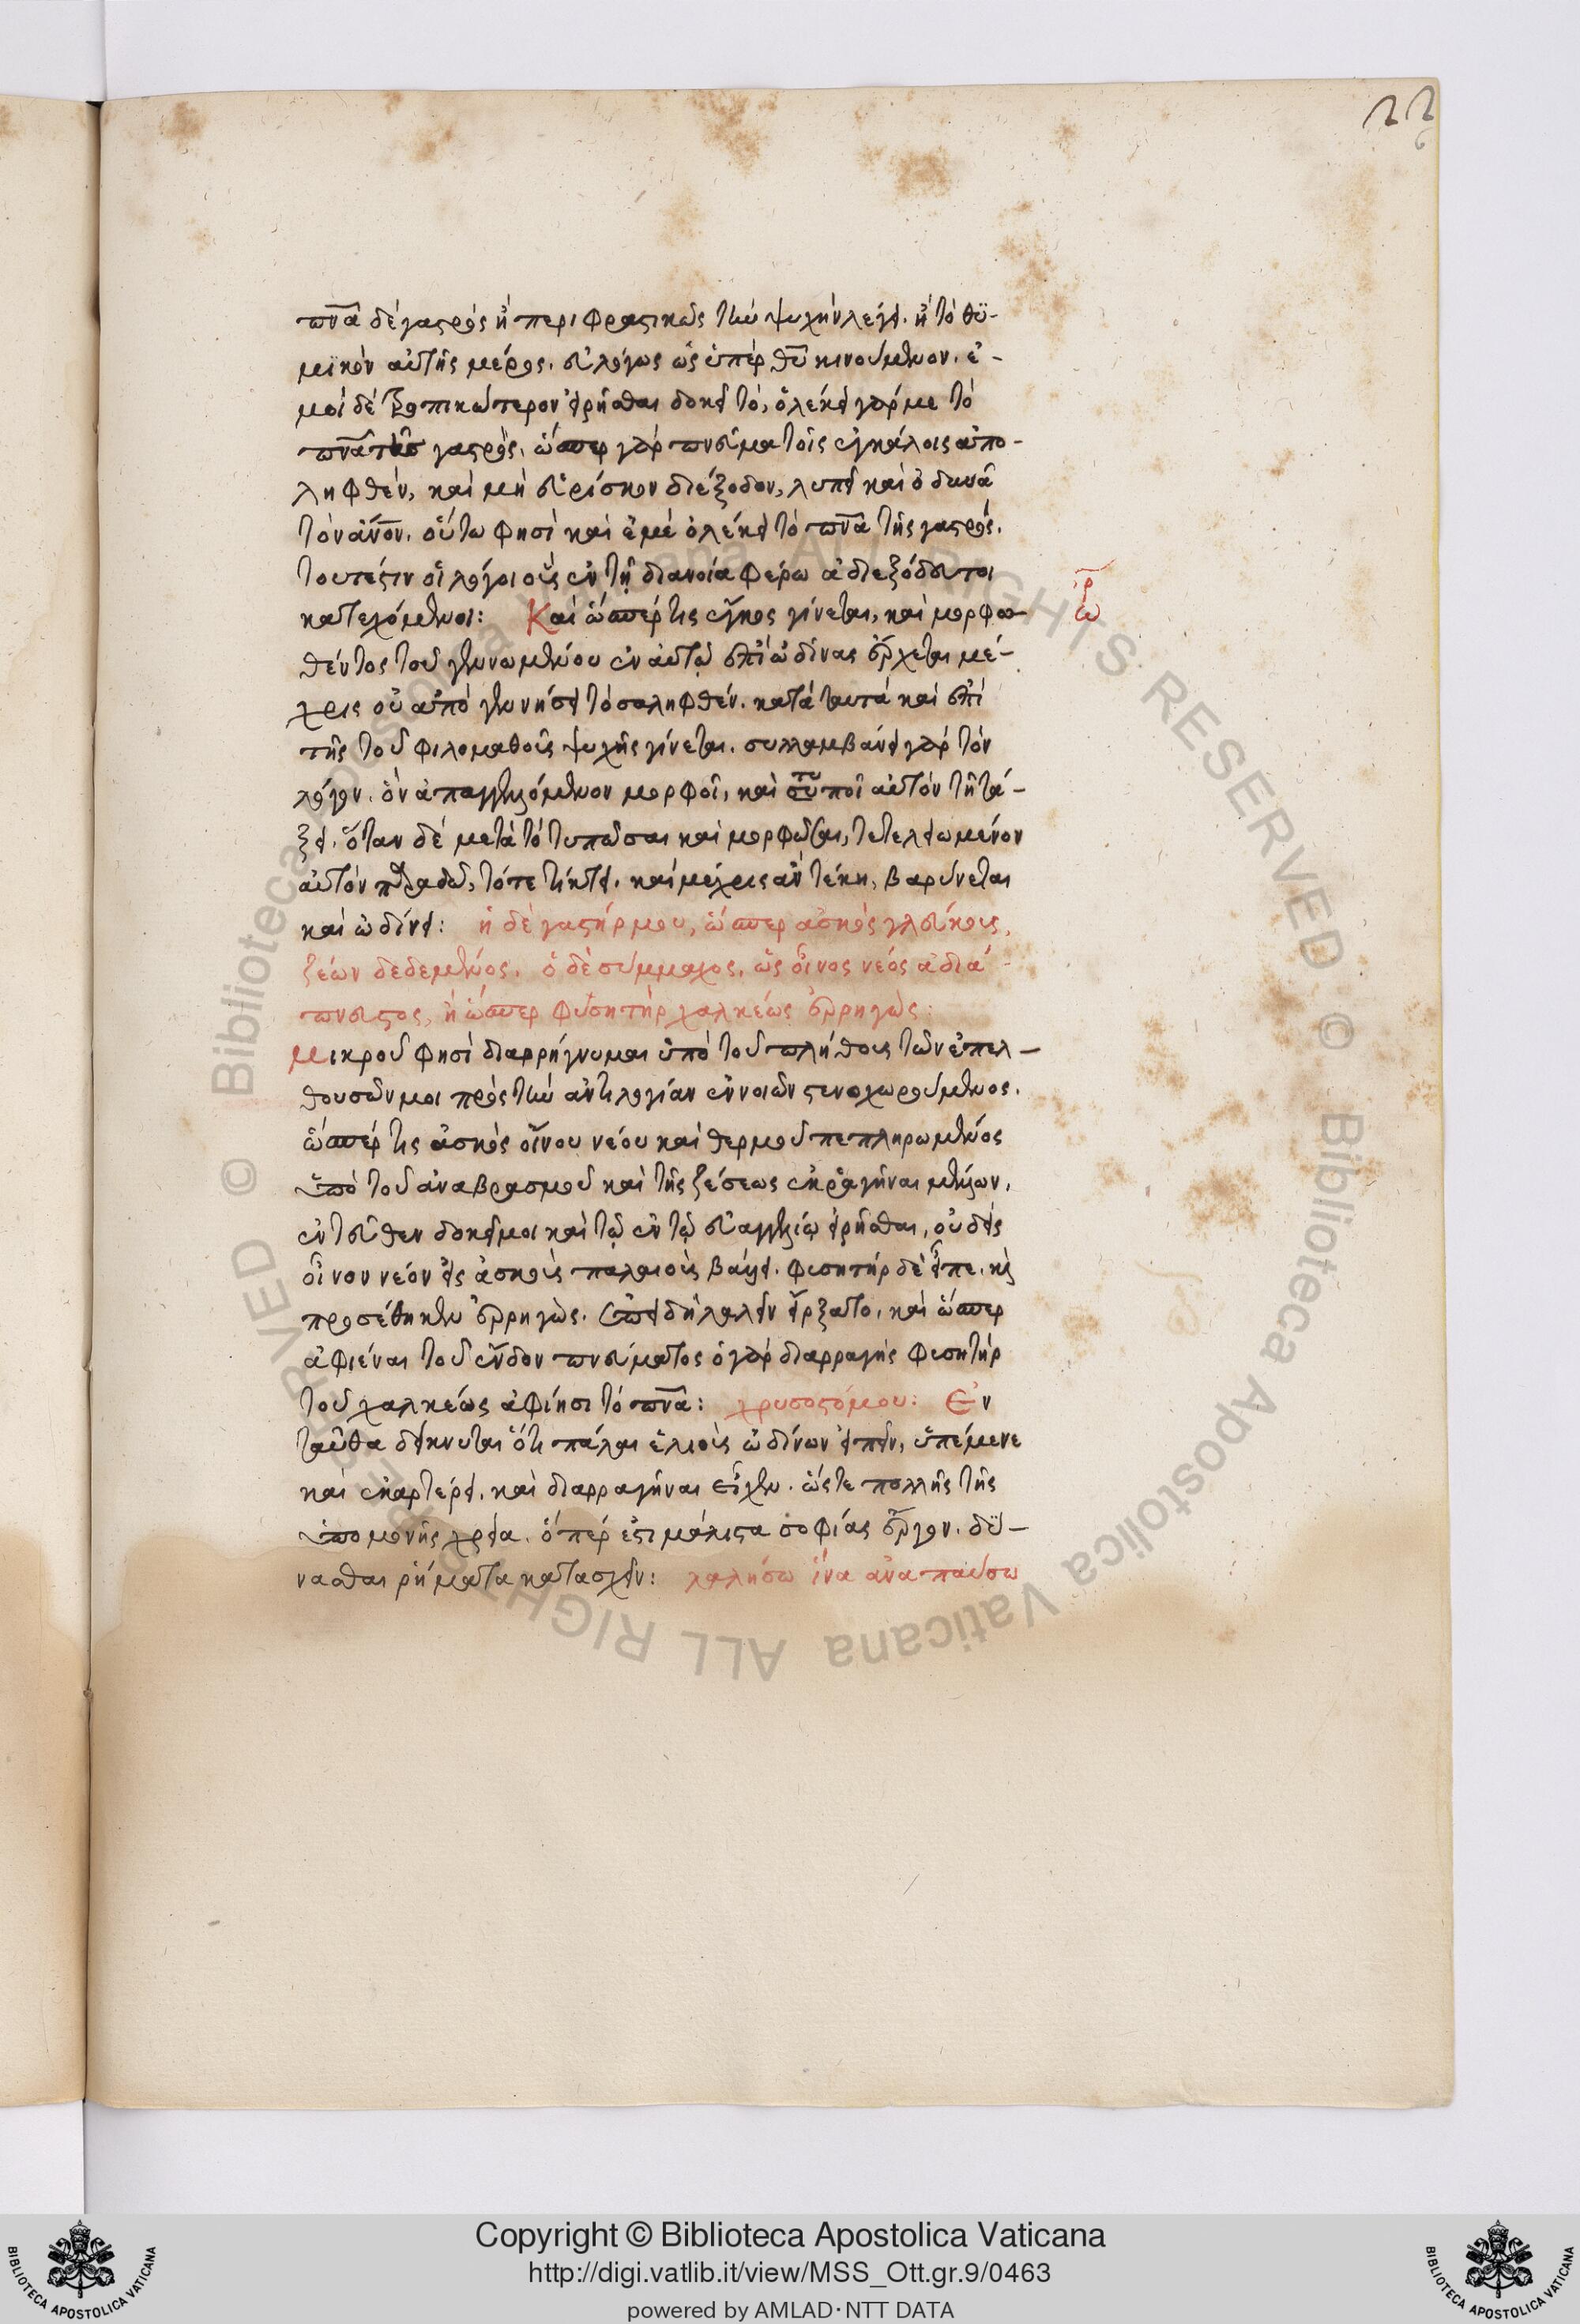 22
6
πν̅α δὲ γαστρὸς ἢ περιφραστικῶς τὴν ψυχὴν λέγει. ἢ τὸ θυ-
μικὸν αὐτῆς μέρος. εὐλόγως ὡς ὑπὲρ θυ̅ κινούμενον. ἐ-
μοὶ δὲ τροπικώτερον εἰρῆσθαι δοκεῖ τό, ὀλέκει γάρ με τὸ
πν̅α τῆς γαστρός. ὥσπερ γὰρ πνεῦμα τοῖς ἐγκάτοις ἀπο-
ληφθέν, καὶ μὴ εὑρίσκον διέξοδον, λυπεῖ καὶ ὀδυνᾶ
τὸν ἄν̅ον. οὕτω φησὶ καὶ ἐμὲ ὀλέκει τὸ πν̅α τῆς γαστρός.
τουτέστιν οἱ λόγοι οὓς ἐν τῇ διανοία φέρω ἀδιεξόδευτοι
κατεχόμενοι: Καὶ ὥσπέρ τις ἔγκυος γίνεται, καὶ μορφω-
ὠρ
θέντος τοῦ γεννωμένου ἐν αὐτῷ ἐπὶ ὠδῖνας ἔρχεται μέ-
χρις οὗ ἀπογεννήσει τὸ συληφθέν. κατὰ ταυτὰ καὶ ἐπὶ
τῆς τοῦ φιλομαθοῦς ψυχῆς γίνεται. συλλαμβάνει γὰρ τὸν
λόγον. ὃν ἀπαγγελλόμενον μορφοῖ, καὶ τυποῖ αὐτὸν τῇ τά-
ξει. ὅταν δὲ μετὰ τὸ τυπῶσαι καὶ μορφῶσαι, τετελειωμένον
αὐτὸν παραδῶ, τότε τίκτει. καὶ μέχρις ἂν τέκη, βαρύνεται
καὶ ὠδίνει: ἡ δὲ γαστήρ μου, ὥσπερ ἀσκὸς γλεύκους,
ζέων δεδεμένος. ὁ δὲ σύμμαχος, ὡς οἶνος νέος ἀδιά-
πνευστος, ἢ ὥσπερ φυσητὴρ χαλκέως ἐρρηγώς:
μικροῦ φησὶ διαρρήγνυμαι ὑπὸ τοῦ πλήθους τῶν ἐπελ-
θουσῶν μοι πρὸς τὴν ἀντιλογίαν ἐννοιῶν στενοχωρούμενος.
ὥσπέρ τις ἀσκὸς οἴνου νέου καὶ θερμοῦ πεπληρωμένος
ὑπὸ τοῦ ἀναβρασμοῦ καὶ τῆς ζέσεως ἐκραγῆναι μέλλων.
ἐντεῦθεν δοκεῖ μοι καὶ τῷ ἐν τῷ εὐαγγελίῳ εἰρῆσθαι, οὐδεὶς
οἶνον νέον εἰς ἀσκοὺς παλαιοὺς βάλλει. φυσητὴρ δὲ εἶπε. κ̀
προσέθηκεν ἐρρηγώς. ἐπεὶ δὴ λαλεῖν ἤρξατο, καὶ ὥσπερ
ἀφιέναι τοῦ ἔνδον πνεύματος ὁ γὰρ διαρραγεὶς φυσητὴρ
τοῦ χαλκέως ἀφίησι τὸ πν̅α: χρυσοστόμου: Ἐν
ταῦθα δείκνυται ὅτι πάλαι ἐλιοὺς ὠδίνων εἰπεῖν, ὑπέμενε
καὶ ἐκαρτέρει. καὶ διαρραγῆναι εἶχεν. ὥστε πολλῆς τῆς
ὑπομονῆς χρεία. ὅπερ ἐστι μάλιστα σοφίας ἔργον. δύ-
νασθαι ῥήματα κατασχεῖν: λαλήσω ἵνα ἀναπαύσω
Copyright © Biblioteca Apostolica Vaticana
http://digi.vatlib.it/view/MSS_Ott.gr.9/0463
powered by AMLAD·NTT DATA